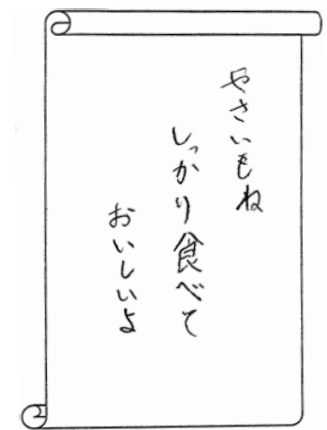 やさいもね
しっかり食べて
おいしいよ